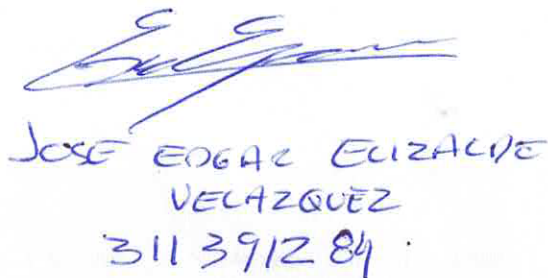 JOSE EDGAR ELIZALDE
VELAZQUEZ
311391284.